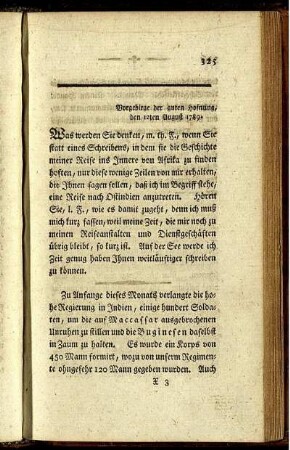 325
Vorgebirge der guten Hofnung,
den 12ten August 1789.
Was werden Sie denken, m. th. F., wenn Sie
statt eines Schreibens, in dem sie die Geschichte
meiner Reise ins Innere von Afrika zu finden
hoften, nur diese wenige Zeilen von mir erhalten,
die Ihnen sagen sollen, daß ich im Begriff stehe,
eine Reise nach Ostindien anzutreten. Hören
Sie, l. F., wie es damit zugeht, denn ich muß
mich kurz fassen, weil meine Zeit, die mir noch zu
meinen Reiseanstalten und Dienstgeschäften
übrig bleibt, so kurz ist. Auf der See werde ich
Zeit genug haben Ihnen weitläuftiger schreiben
zu können.
Zu Anfange dieses Monats verlangte die ho-
he Regierung in Indien, einige hundert Solda-
ten, um die auf Maccassar ausgebrochenen
Unruhen zu stillen und die Buginesen daselbst
in Zaum zu halten. Es wurde ein Korps von
450 Mann formirt, wozu von unserm Regimen-
te ohngefehr 120 Mann gegeben wurden. Auch
X 3